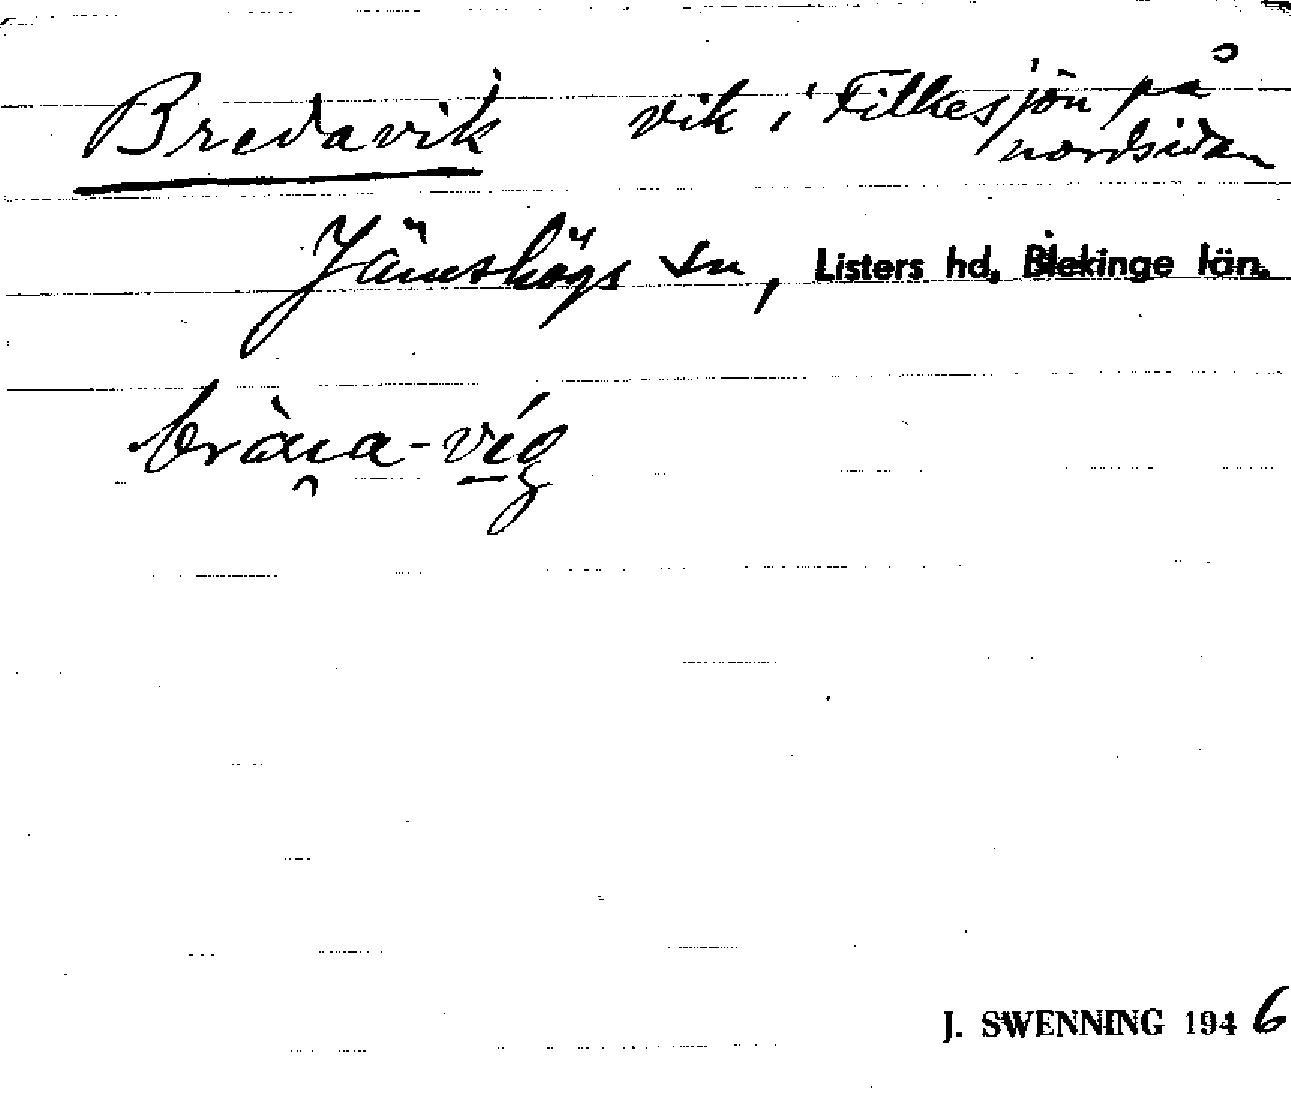 Bredavik vik i Filkesjön på
nordsidan
Jämshögs sn, Listers hd, Blekinge län.
J. SWENNING 1946